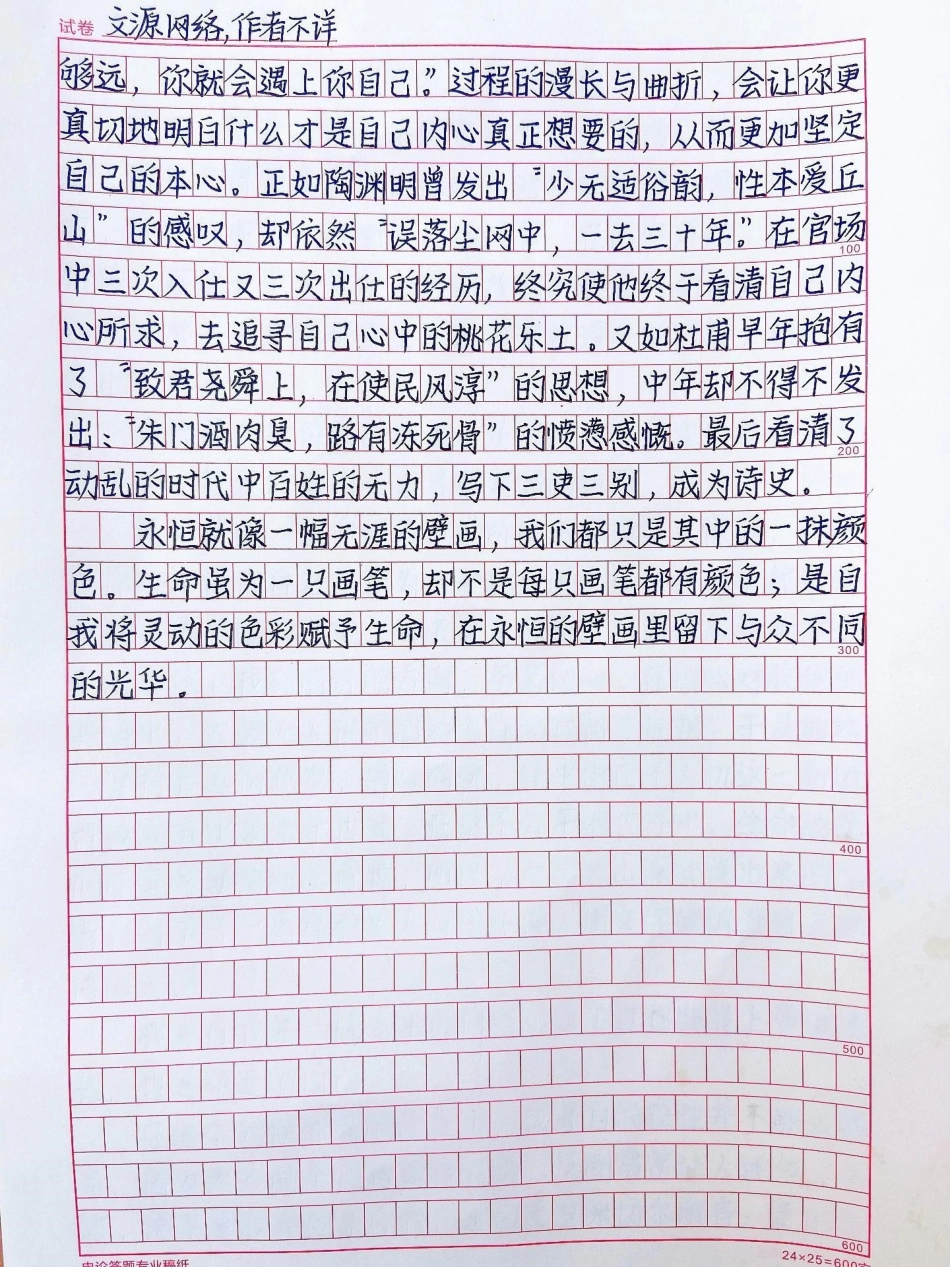 试卷 文源网络,作者不详
够远，你就会遇上你自己。”过程的漫长与曲折，会让你更
真切地明白什么才是自己内心真正想要的，从而更加坚定
自己的本心。正如陶渊明曾发出“少无适俗韵，性本爱丘
山”的感叹，却依然“误落尘网中，一去三十年。”在官场
100
中三次入仕又三次出仕的经历，终究使他终于看清自己内
心所求，去追寻自己心中的桃花乐土。又如杜甫早年抱有
了“致君尧舜上，在使民风淳”的思想，中年却不得不发
出：“朱门酒肉臭，路有冻死骨”的愤懑感慨。最后看清了
200
动乱的时代中百姓的无力，写下三吏三别，成为诗史。
永恒就像一幅无涯的壁画，我们都只是其中的一抹颜
色。生命虽为一只画笔，却不是每只画笔都有颜色；是自
我将灵动的色彩赋予生命，在永恒的壁画里留下与众不同
300
的光华。
400
500
600
申论答题专业稿纸
24×25=600字